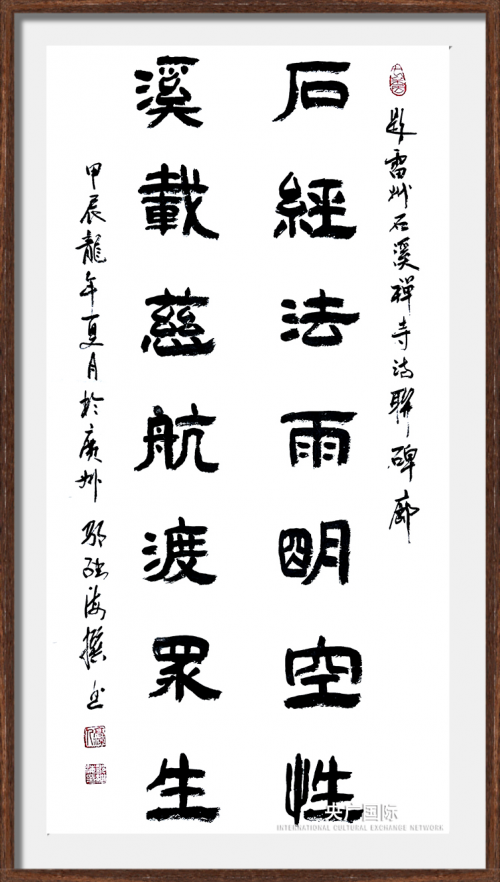 題雷州石溪禪寺诗聯碑廊
石經法雨明空性
溪載慈航渡眾生
甲辰龍年夏月於廣州 海撰书
央广国际
INTERNATIONAL CULTURAL EXCHANGE NETWORK